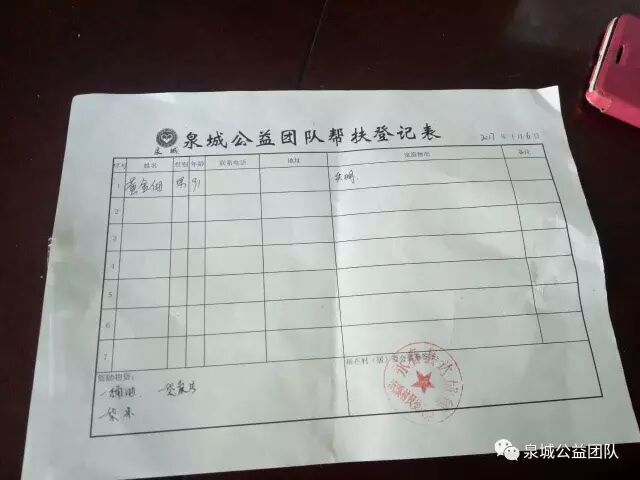 泉城公益团队帮扶登记表
泉城
2017年1月6日
序号 姓名 性别 年龄 联系电话 地址 家庭情况 备注
1 黄金钿 男 91 失明.
2
3
4
5
6
7
资助物资:
一桶油
一袋米
所在村(居)委会
泉城公益团队